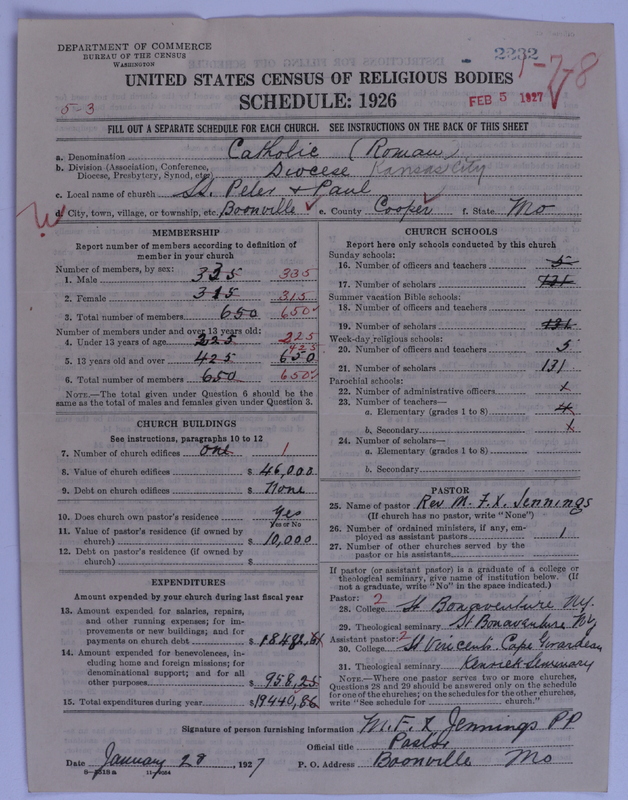 DEPARTMENT OF COMMERCE
BUREAU OF THE CENSUS
WASHINGTON
2232
1-7-8
UNITED STATES CENSUS OF RELIGIOUS BODIES
SCHEDULE: 1926
FEB 5 1927
5-3
FILL OUT A SEPARATE SCHEDULE FOR EACH CHURCH. SEE INSTRUCTIONS ON THE BACK OF THIS SHEET
a. Denomination Catholic (Roman)
b. Division (Association, Conference, Diocese, Presbytery, Synod, etc.) Diocese Kansas City
c. Local name of church St. Peter & Paul
d. City, town, village, or township, etc. Boonville e. County Cooper f. State Mo
MEMBERSHIP
Report number of members according to definition of
member in your church
Number of members, by sex:
1. Male 335 335
2. Female 315 315
3. Total number of members 650 650
Number of members under and over 13 years old:
4. Under 13 years of age 225 225
5. 13 years old and over 425 650 425
6. Total number of members 650 650
NOTE.—The total given under Question 6 should be the
same as the total of males and females given under Question 3.
CHURCH BUILDINGS
See instructions, paragraphs 10 to 12
7. Number of church edifices one 1
8. Value of church edifices $ 46,000
9. Debt on church edifices $ None
10. Does church own pastor's residence Yes
Yes or No
11. Value of pastor's residence (if owned by
church) $ 10,000
12. Debt on pastor's residence (if owned by
church) $
EXPENDITURES
Amount expended by your church during last fiscal year
13. Amount expended for salaries, repairs,
and other running expenses; for im-
provements or new buildings; and for
payments on church debt $ 18482,61
14. Amount expended for benevolences, in-
cluding home and foreign missions; for
denominational support; and for all
other purposes $ 958,25
15. Total expenditures during year $ 19440,86
CHURCH SCHOOLS
Report here only schools conducted by this church
Sunday schools:
16. Number of officers and teachers 5
17. Number of scholars 131
Summer vacation Bible schools:
18. Number of officers and teachers
19. Number of scholars 131
Week-day religious schools:
20. Number of officers and teachers 5
21. Number of scholars 131
Parochial schools:
22. Number of administrative officers 1
23. Number of teachers—
a. Elementary (grades 1 to 8) 4
b. Secondary 1
24. Number of scholars—
a. Elementary (grades 1 to 8)
b. Secondary
PASTOR
25. Name of pastor Rev M. F. X. Jennings
(If church has no pastor, write "None")
26. Number of ordained ministers, if any, em-
ployed as assistant pastors 1
27. Number of other churches served by the
pastor or his assistants
If pastor (or assistant pastor) is a graduate of a college or
theological seminary, give name of institution below. (If
not a graduate, write "No" in the space indicated.)
Pastor: 2
28. College St Bonaventure NY.
29. Theological seminary St Bonaventure NY,
Assistant pastor: 2
30. College St Vincents Cape Girardeau
31. Theological seminary Kenrick Seminary
NOTE.—Where one pastor serves two or more churches,
Questions 28 and 29 should be answered only on the schedule
for one of the churches; on the schedules for the other churches,
write "See schedule for church."
Signature of person furnishing information M. F. X Jennings PP
Official title Pastor
Date January 28, 1927 P. O. Address Boonville Mo